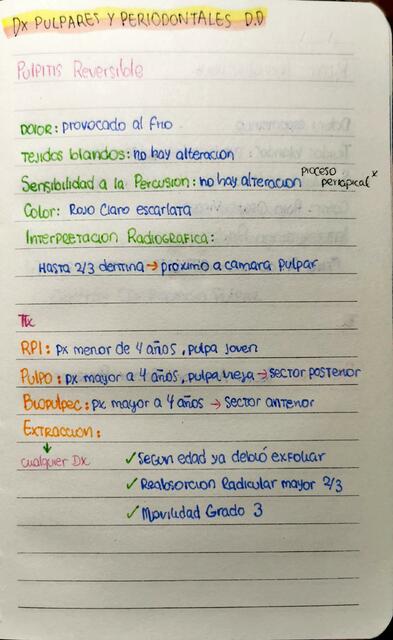 Dx PULPARES Y PERIODONTALES D.D
PULPITIS Reversible
DOLOR: provocado al frio
Tejidos blandos: no hay alteracion
Sensibilidad a la Percusion: no hay alteracion proceso periapical x
Color: Rojo Claro escarlata
Interpretacion Radiografica:
Hasta 2/3 dentina → proximo a camara pulpar
Tx
RPI: px menor de 4 años, pulpa joven
Pulpo: px mayor a 4 años, pulpa vieja → sector posterior
Biopulpec: px mayor a 4 años → sector anterior
Extraccion:
cualquier Dx ✓ Segun edad ya debió exfoliar
✓ Reabsorcion Radicular mayor 2/3
✓ Movilidad Grado 3